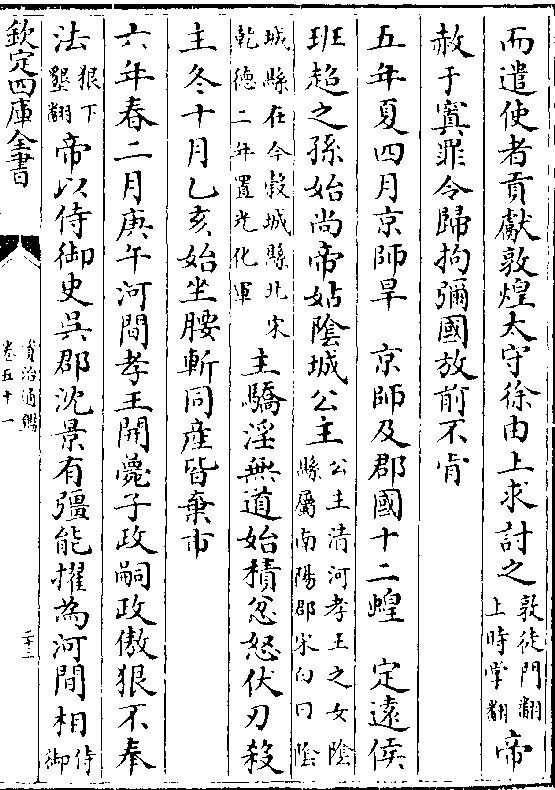 而遣使者貢獻敦煌太守徐由上求討之敦徒門翻上時掌翻帝
赦于窴罪令歸拘彌國放前不肯
五年夏四月京師旱　京師及郡國十二蝗　定遠侯
班超之孫始尚帝姑陰城公主公主清河孝王之女陰縣屬南陽郡宋白曰陰
城縣在今穀城縣北宋乾德二年置光化軍主驕淫無道始積忿怒伏刃殺
主冬十月乙亥始坐腰斬同產皆棄市
六年春二月庚午河間孝王開薨子政嗣政傲狠不奉
法狠下墾翻帝以侍御史吳郡沈景有彊能擢為河間相侍御
欽定四庫全書
資治通鑑
卷五十一
二十三